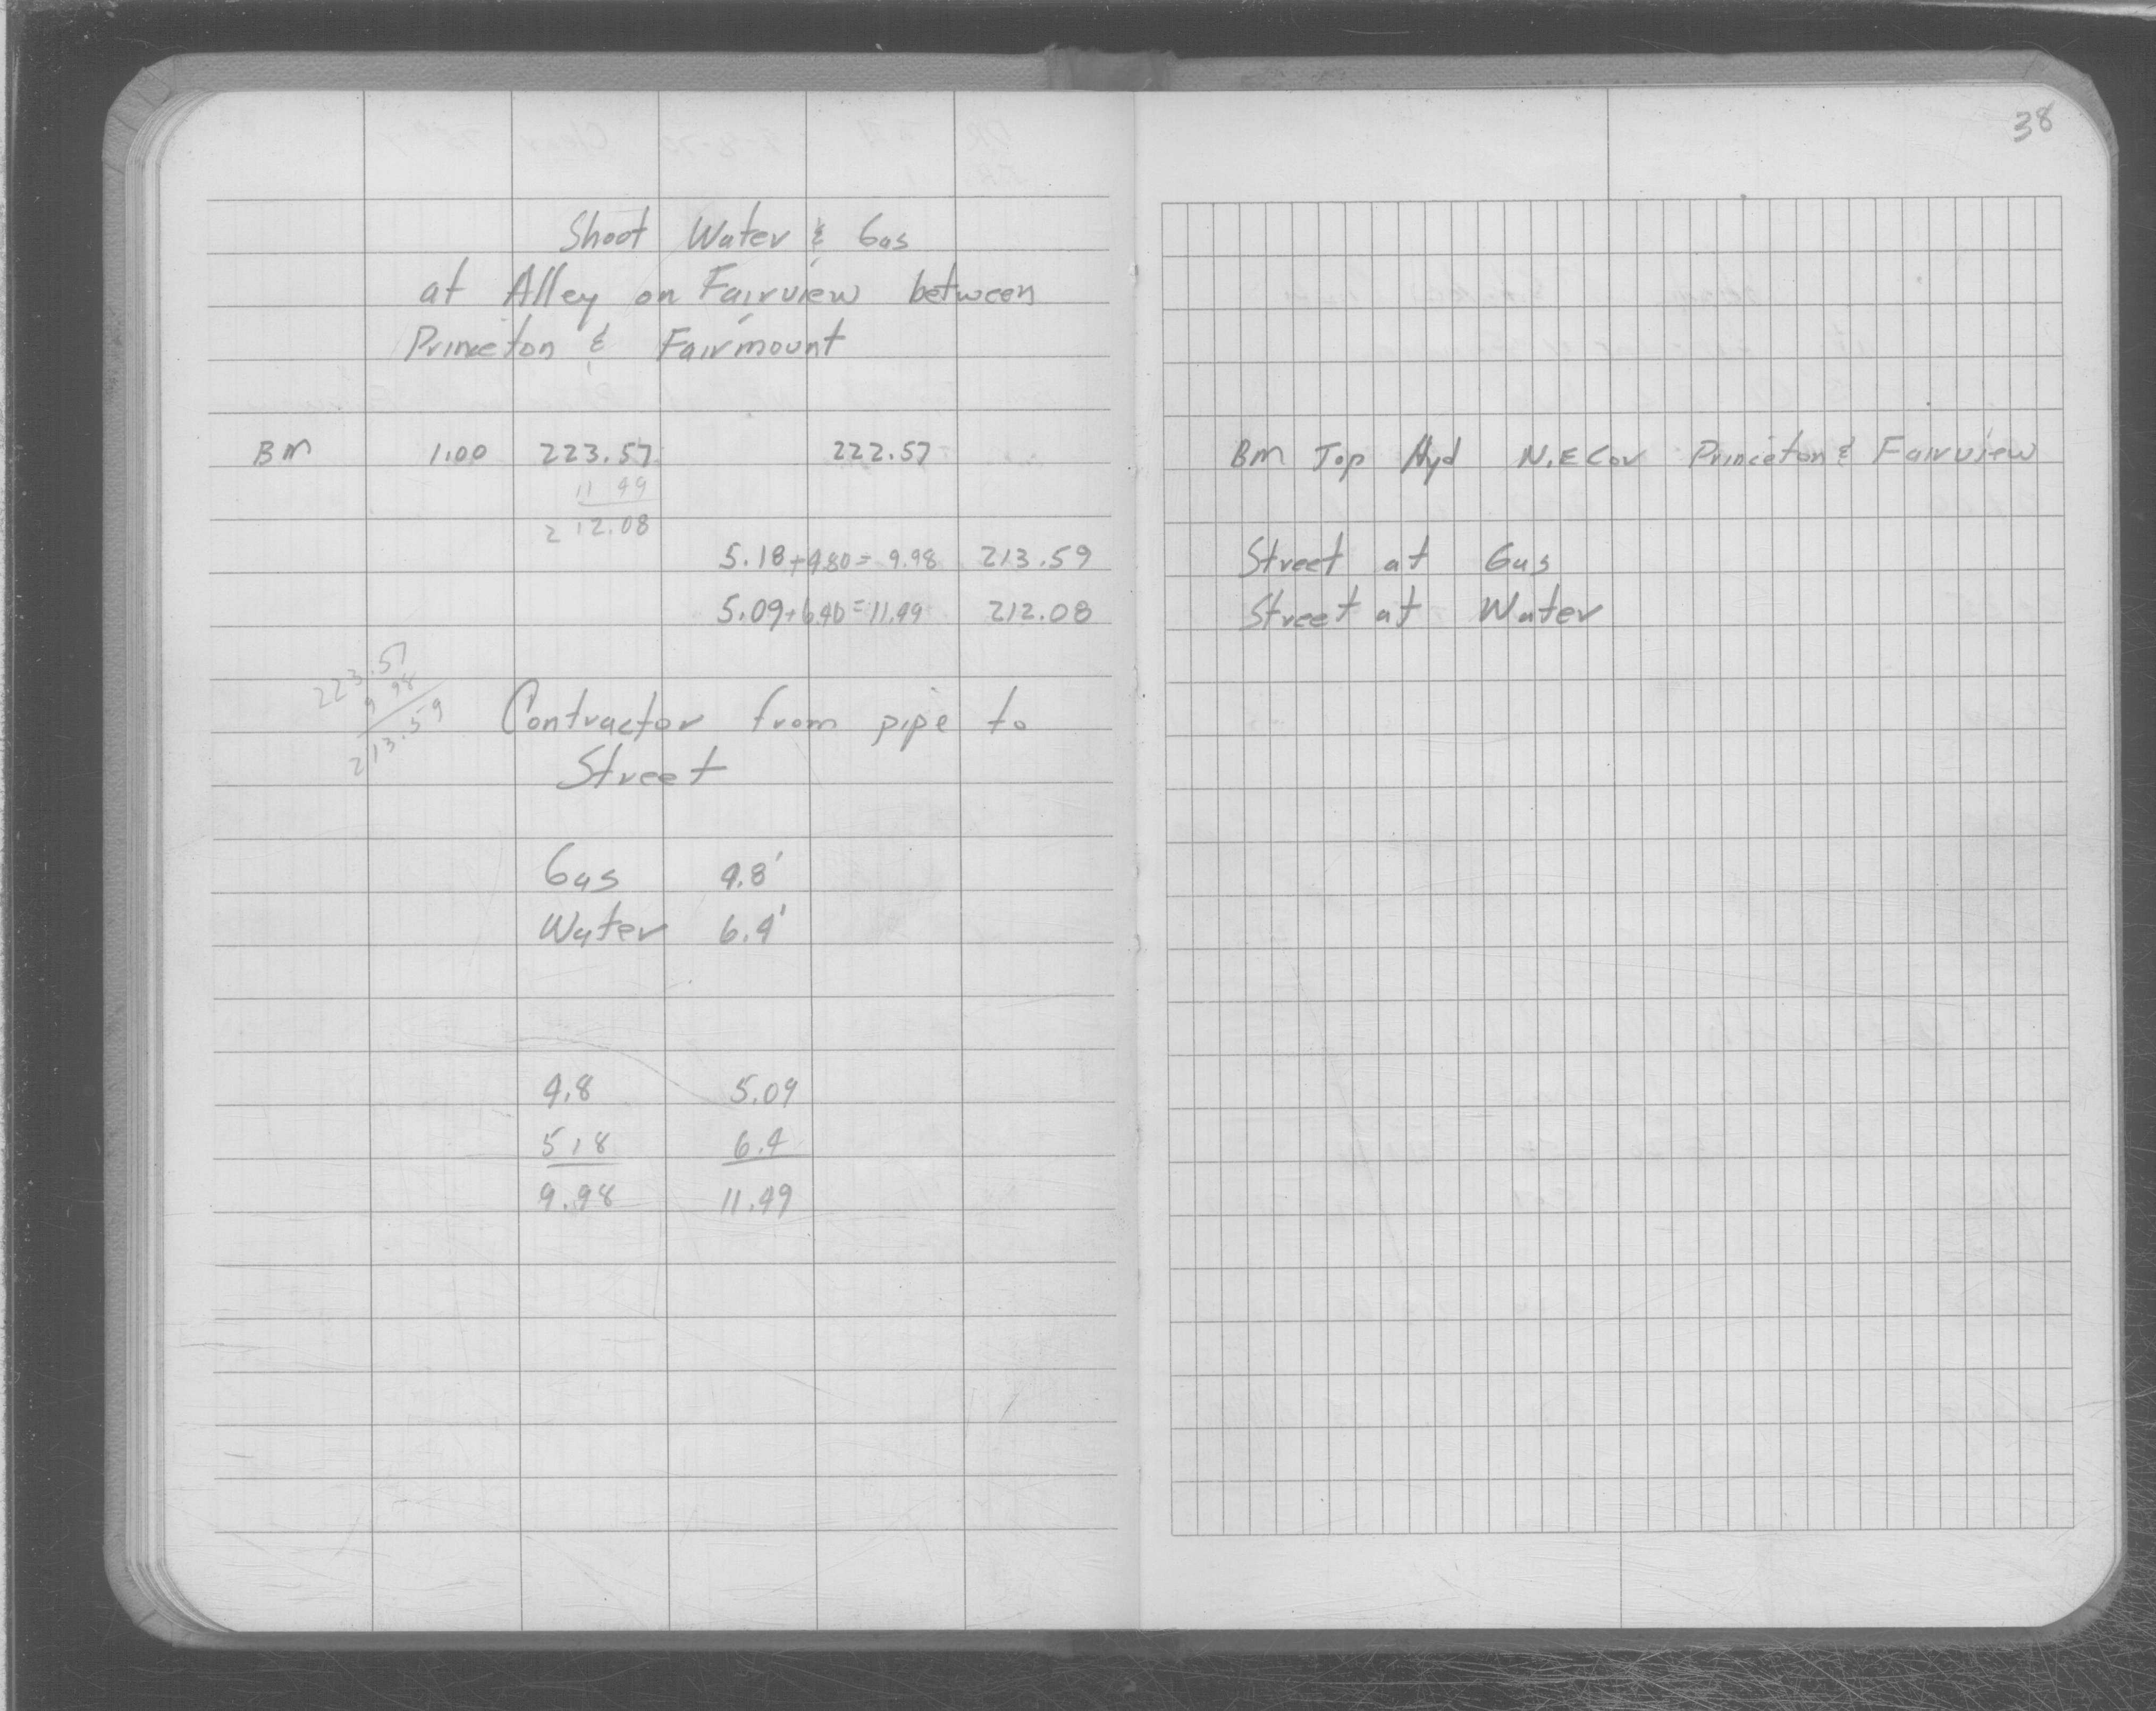 38
Shoot Water & Gas
at Alley on Fairview between
Princeton & Fairmount
BM 1.00 223.57 222.57 BM Top Hyd N.E Cor Princeton & Fairview
11 49
212.08
5.18+4.80= 9.98 213.59 Street at Gas
5.09+6.40=11.49 212.08 Street at Water
223.57
9 98
213.59
Contractor from pipe to
Street
Gas 4.8'
Water 6.4'
4.8 5.09
5.18 6.4
9.98 11.49